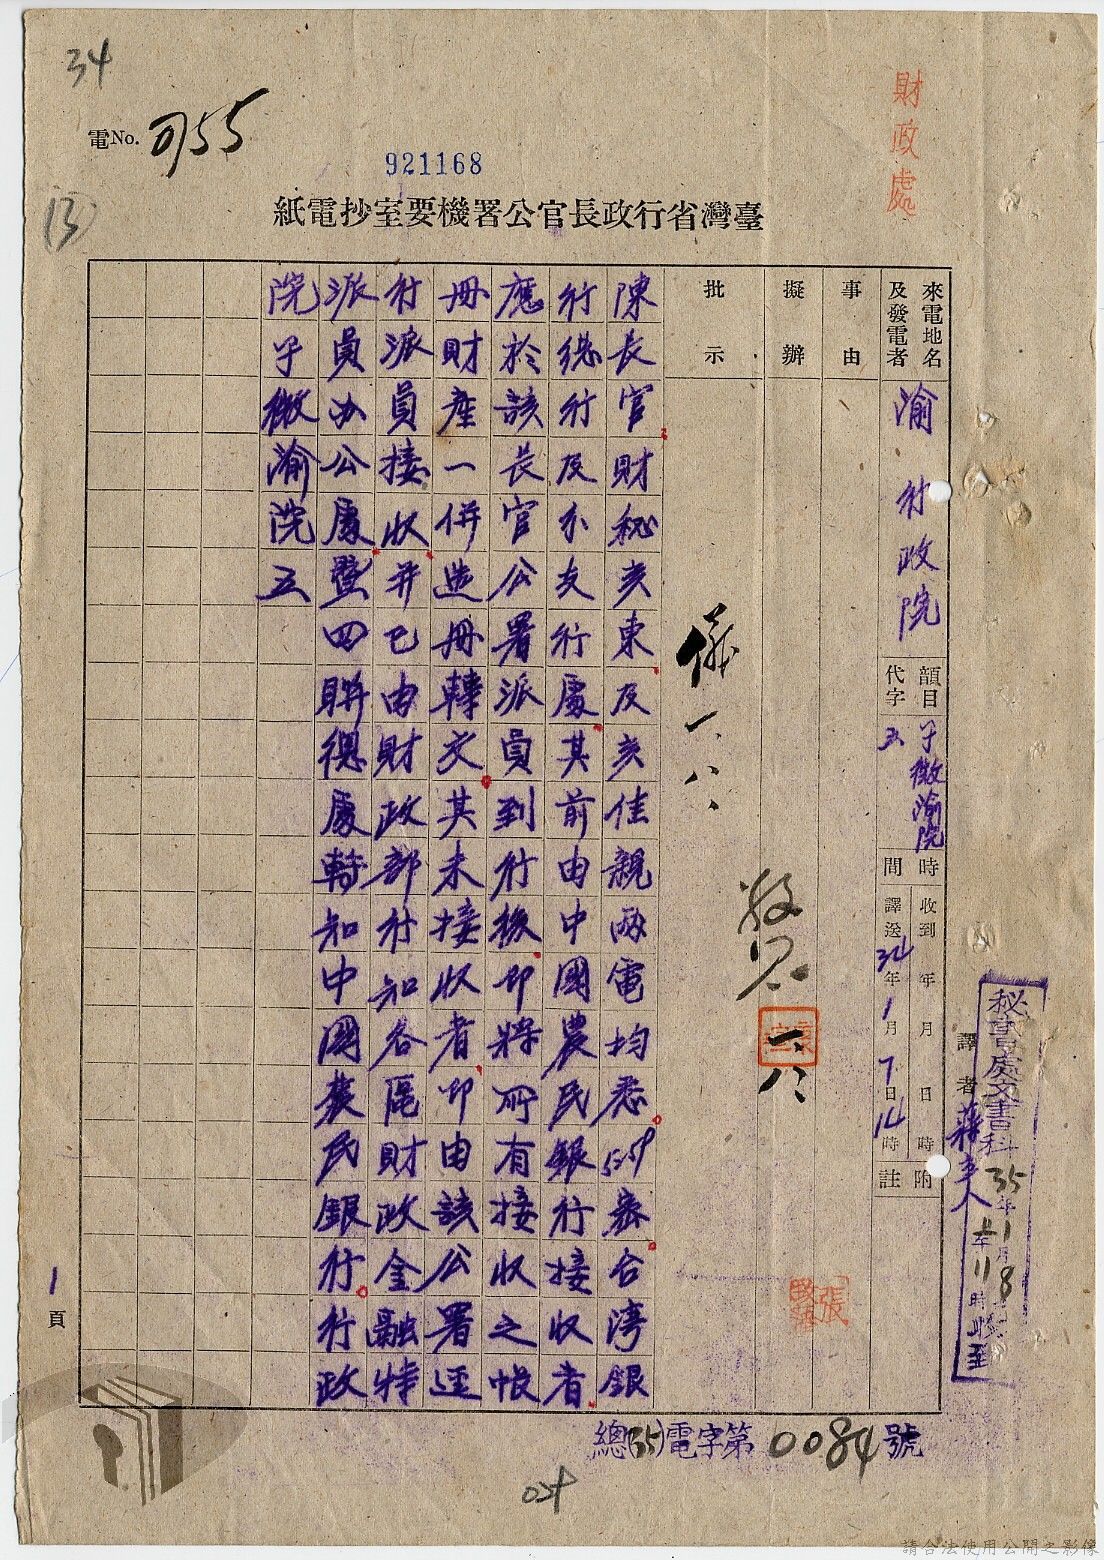 34
電No. 055
921168
財政處
(13)
臺灣省行政長官公署機要室抄電紙
來電地名及發電者
渝行政院
韻目代字
子微渝院五
時間
收到 年 月 日 時
譯送34年1月7日14時
譯者
附註
事由
擬辦
批示
一、八、
一八
陳長官財秘亥東及亥佳親兩電均悉密台湾銀
行總行及分支行處其前由中國農民銀行接收者
應於該長官公署派員到行後即將所有接收之帳
冊財產一併造冊轉交其未接收者即由該公署逕
行派員接收并已由財政部行知各區財政金融特
派員办公處暨四聯總處轉知中國農民銀行行政
院子微渝院五
秘書處文書科
35年1月8日
上午11時收至
1頁
總(35)電字第0084號
請合法使用公開之影像